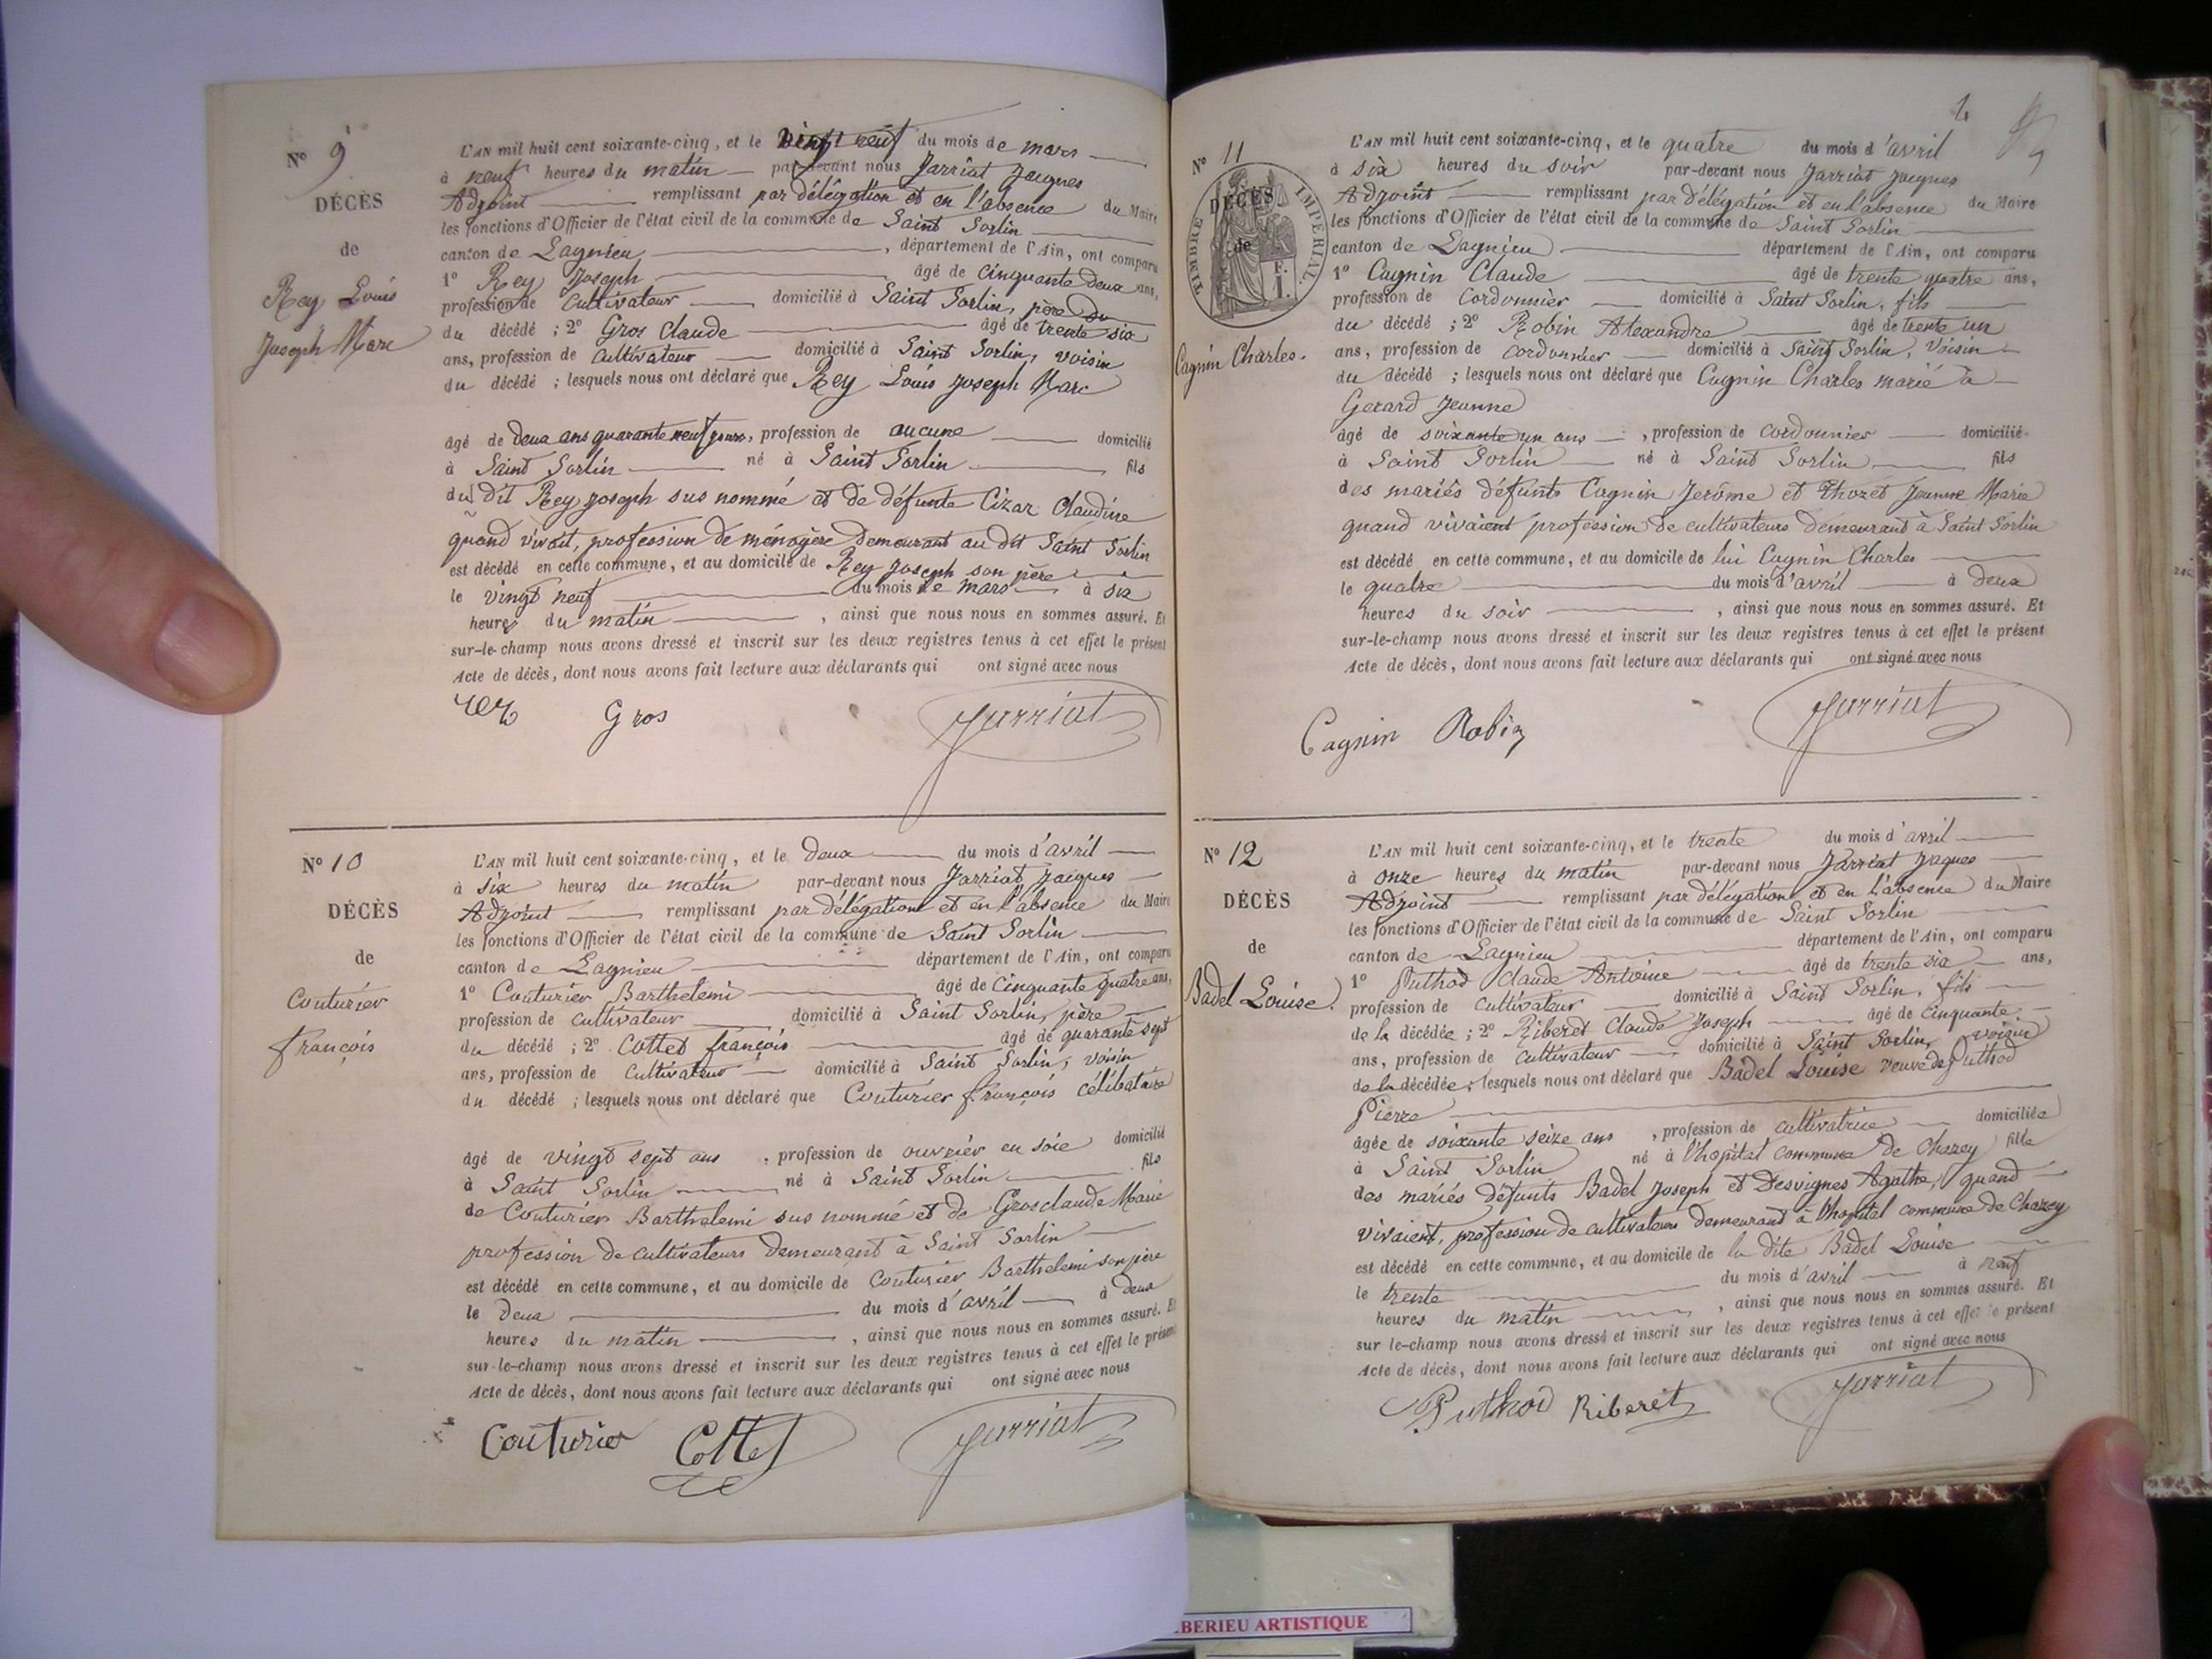 N° 9
DÉCÈS
de
Rey Louis
Joseph Marc
L'AN mil huit cent soixante-cinq, et le vingt neuf du mois de mars
à neuf heures du matin par-devant nous Jarriat Jacques
Adjoint remplissant par délégation et en l'absence du Maire
les fonctions d'Officier de l'état civil de la commune de Saint Sorlin
canton de Lagnieu, département de l'Ain, ont comparu
1° Rey Joseph âgé de cinquante deux ans,
profession de cultivateur domicilié à Saint Sorlin, père du
du décédé ; 2° Gros Claude âgé de trente six
ans, profession de cultivateur domicilié à Saint Sorlin, voisin
du décédé ; lesquels nous ont déclaré que Rey Louis Joseph Marc
âgé de deux ans quarante neuf jours, profession de aucune domicilié
à Saint Sorlin né à Saint Sorlin fils
du dit Rey Joseph sus nommé et de défunte Cizar Claudine
quand vivait, profession de ménagère demeurant au dit Saint Sorlin
est décédé en cette commune, et au domicile de Rey Joseph son père
le vingt neuf du mois de mars à six
heures du matin, ainsi que nous nous en sommes assuré. Et
sur-le-champ nous avons dressé et inscrit sur les deux registres tenus à cet effet le présent
Acte de décès, dont nous avons fait lecture aux déclarants qui ont signé avec nous
Gros Jarriat
N° 10
DÉCÈS
de
Couturier
françois
L'AN mil huit cent soixante-cinq, et le deux du mois d'avril
à six heures du matin par-devant nous Jarriat Jacques
Adjoint remplissant par délégation et en l'absence du Maire
les fonctions d'Officier de l'état civil de la commune de Saint Sorlin
canton de Lagnieu département de l'Ain, ont comparu
1° Couturier Barthelemi âgé de cinquante quatre ans,
profession de cultivateur domicilié à Saint Sorlin, père
du décédé ; 2° Cottet françois âgé de quarante sept
ans, profession de cultivateur domicilié à Saint Sorlin, voisin
du décédé ; lesquels nous ont déclaré que Couturier françois célibataire
âgé de vingt sept ans, profession de ouvrier en soie domicilié
à Saint Sorlin né à Saint Sorlin fils
de Couturier Barthelemi sus nommé et de Grosclaude Marie
profession de cultivateurs demeurant à Saint Sorlin
est décédé en cette commune, et au domicile de Couturier Barthelemi son père
le deux du mois d'avril à deux
heures du matin, ainsi que nous nous en sommes assuré. Et
sur-le-champ nous avons dressé et inscrit sur les deux registres tenus à cet effet le présent
Acte de décès, dont nous avons fait lecture aux déclarants qui ont signé avec nous
Couturier Cottet Jarriat
N° 11
TIMBRE IMPÉRIAL
DÉCÈS
de
Cagnin Charles.
L'AN mil huit cent soixante-cinq, et le quatre du mois d'avril
à six heures du soir par-devant nous Jarriat Jacques
Adjoint remplissant par délégation et en l'absence du Maire
les fonctions d'Officier de l'état civil de la commune de Saint Sorlin
canton de Lagnieu département de l'Ain, ont comparu
1° Cagnin Claude âgé de trente quatre ans,
profession de cordonnier domicilié à Saint Sorlin, fils
du décédé ; 2° Robin Alexandre âgé de trente un
ans, profession de cordonnier domicilié à Saint Sorlin, voisin
du décédé ; lesquels nous ont déclaré que Cagnin Charles marié à
Gerard Jeanne
âgé de soixante un ans, profession de cordonnier domicilié
à Saint Sorlin né à Saint Sorlin fils
des mariés défunts Cagnin Jerôme et Thozet Jeanne Marie
quand vivaient profession de cultivateurs demeurant à Saint Sorlin
est décédé en cette commune, et au domicile de lui Cagnin Charles
le quatre du mois d'avril à deux
heures du soir, ainsi que nous nous en sommes assuré. Et
sur-le-champ nous avons dressé et inscrit sur les deux registres tenus à cet effet le présent
Acte de décès, dont nous avons fait lecture aux déclarants qui ont signé avec nous
Cagnin Robin Jarriat
N° 12
DÉCÈS
de
Badel Louise.
L'AN mil huit cent soixante-cinq, et le trente du mois d'avril
à onze heures du matin par-devant nous Jarriat Jaques
Adjoint remplissant par délégation et en l'absence du Maire
les fonctions d'Officier de l'état civil de la commune de Saint Sorlin
canton de Lagnieu département de l'Ain, ont comparu
1° Puthod Claude Antoine âgé de trente six ans,
profession de cultivateur domicilié à Saint Sorlin, fils
de la décédée ; 2° Riberet Claude Joseph âgé de cinquante
ans, profession de cultivateur domicilié à Saint Sorlin, voisin
de la décédée ; lesquels nous ont déclaré que Badel Louise veuve de Puthod
Pierre
âgée de soixante seize ans, profession de cultivatrice domiciliée
à Saint Sorlin né à l'hopital commune de Chazey fille
des mariés défunts Badel Joseph et Desvignes Agathe, quand
vivaient, profession de cultivateurs demeurant à l'hopital commune de Chazey
est décédé en cette commune, et au domicile de la dite Badel Louise
le trente du mois d'avril à neuf
heures du matin, ainsi que nous nous en sommes assuré. Et
sur le-champ nous avons dressé et inscrit sur les deux registres tenus à cet effet le présent
Acte de décès, dont nous avons fait lecture aux déclarants qui ont signé avec nous
Puthod Riberet Jarriat
BERIEU ARTISTIQUE